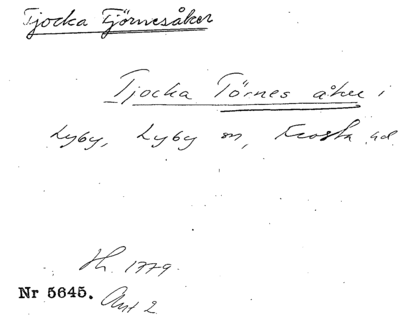 Tjocka Tjörnesåker
Tjocka Törnes åker i
Lyby, Lyby sn, Frosta hd
Hh. 1779.
Nr 5645. Ant 2